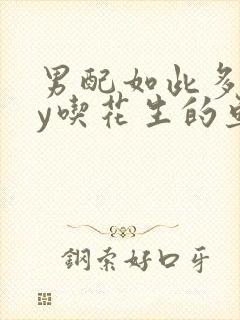 男配如此多
y喫花生的
鋼索好口牙